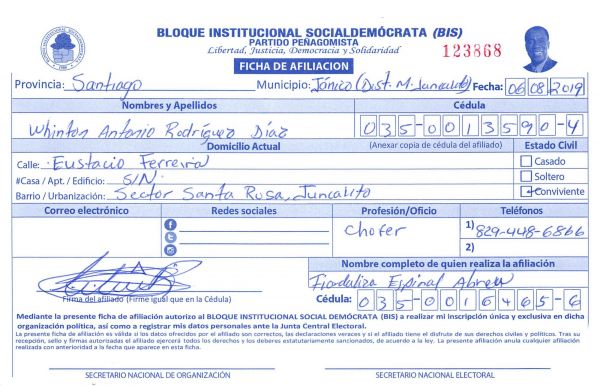 BLOQUE INSTITUCIONAL SOCIALDEMÓCRATA (BIS)
PARTIDO PEÑAGOMISTA
Libertad, Justicia, Democracia y Solidaridad
123868
FICHA DE AFILIACION
Provincia: Santiago Municipio: Jánico (Dist. M. Juncalito) Fecha: 06 08 2019
Nombres y Apellidos Cédula
Whinton Antonio Rodríguez Díaz 035-0013590-4
Domicilio Actual (Anexar copia de cédula del afiliado) Estado Civil
Calle: Eustacio Ferreira Casado
#Casa / Apt. / Edificio: S/N. Soltero
Barrio / Urbanización: Sector Santa Rosa, Juncalito Conviviente
Correo electrónico Redes sociales Profesión/Oficio Teléfonos
Chofer 1) 829-448-6866
2)
Nombre completo de quien realiza la afiliación
Fiordaliza Espinal Abreu
Firma del afiliado (Firme igual que en la Cédula) Cédula: 035-0016465-6
Mediante la presente ficha de afiliación autorizo al BLOQUE INSTITUCIONAL SOCIAL DEMÓCRATA (BIS) a realizar mi inscripción única y exclusiva en dicha
organización política, así como a registrar mis datos personales ante la Junta Central Electoral.
La presente ficha de afiliación es válida si los datos ofrecidos por el afiliado son correctos, las declaraciones veraces y si el afiliado tiene el disfrute de sus derechos civiles y políticos. Tras su
recepción, sello y firmas autorizadas el afiliado ejercerá todos los derechos y los deberes estatutariamente sancionados, de acuerdo a la ley. La presente afiliación anula cualquier afiliación
realizada con anterioridad a la fecha que aparece en esta ficha.
SECRETARIO NACIONAL DE ORGANIZACIÓN SECRETARIO NACIONAL ELECTORAL